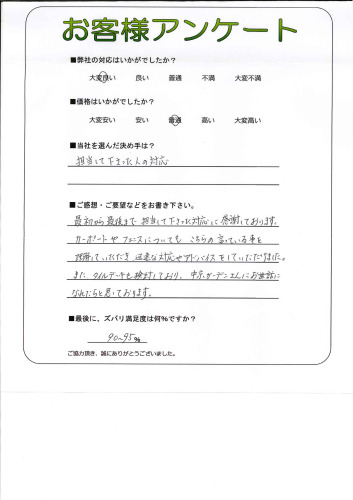 お客様アンケート
■弊社の対応はいかがでしたか？
大変良い 良い 普通 不満 大変不満
■価格はいかがでしたか？
大変安い 安い 普通 高い 大変高い
■当社を選んだ決め手は？
担当して下さった人の対応
■ご感想・ご要望などをお書き下さい。
最初から最後まで担当して下さった対応に感謝しております。
カーポートやフェンスについても こちらの言っている事を
理解していただき 迅速な対応やアドバイスをしていただけました。
また、タイルデッキも検討しており、中京ガーデンさんにお世話に
なれたらと思っております。
■最後に、ズバリ満足度は何％ですか？
90～95％
ご協力頂き、誠にありがとうございました。